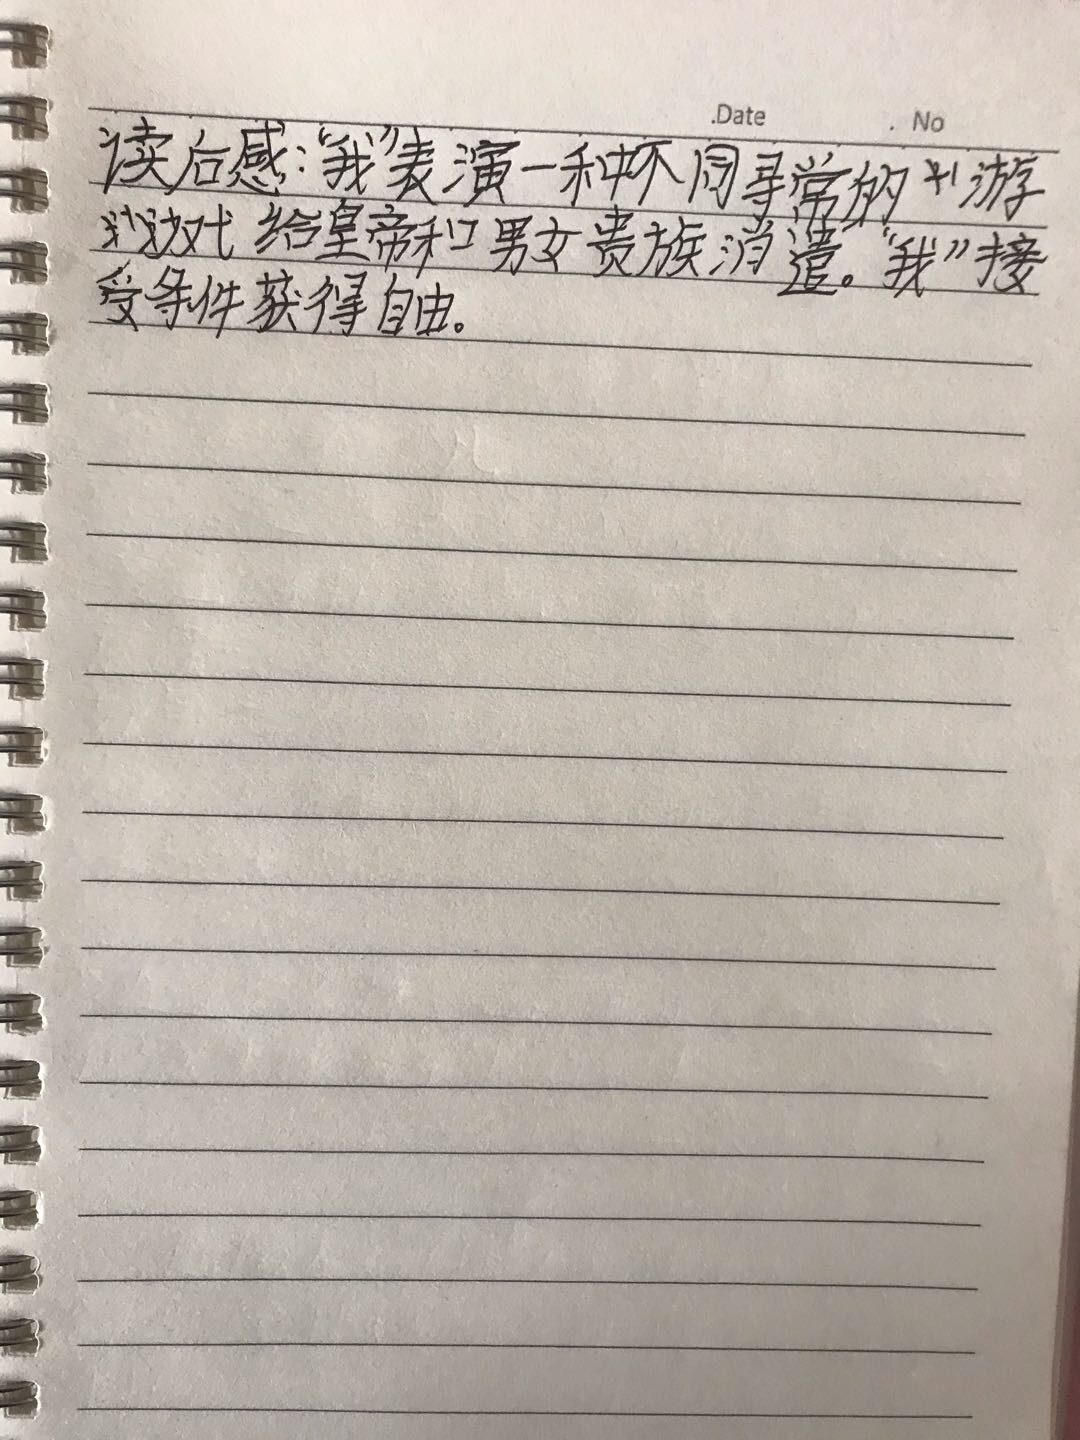 .Date . No
读后感:"我"表演一种不同寻常的 游
戏 给皇帝和男女贵族消遣。"我"接
受条件获得自由。